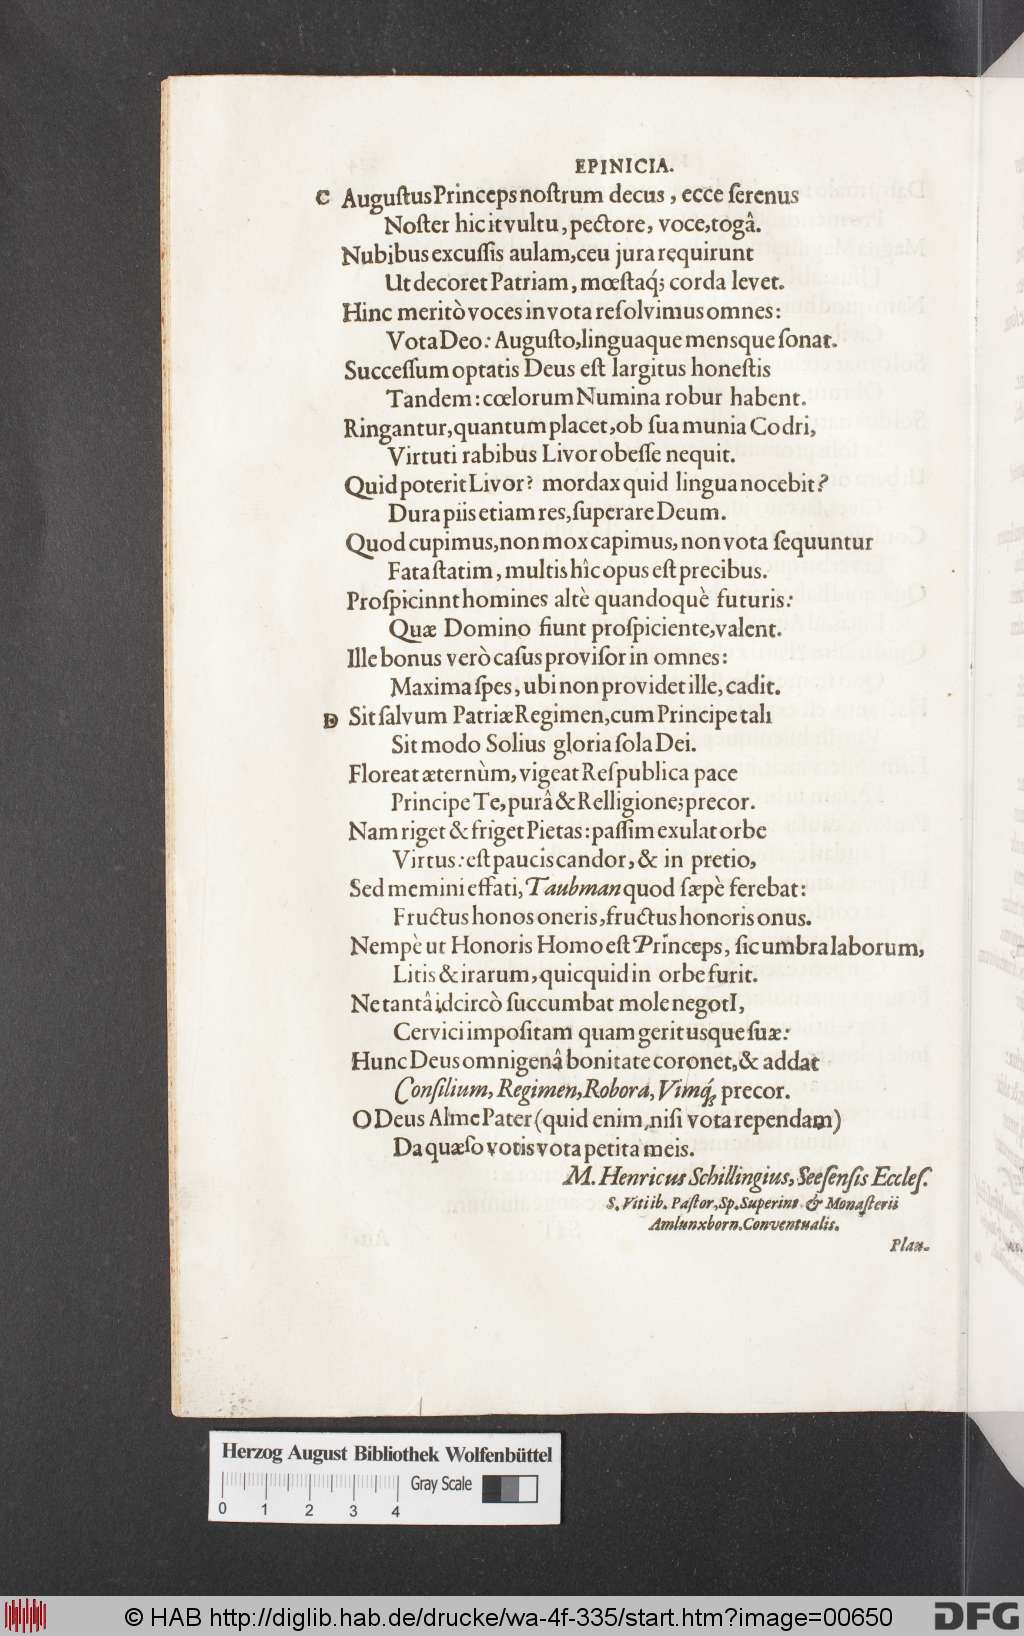 EPINICIA.
C Augustus Princeps nostrum decus, ecce serenus
Noster hic it vultu, pectore, voce, togâ.
Nubibus excussis aulam, ceu jura requirunt
Ut decoret Patriam, mœstaq́; corda levet.
Hinc meritò voces in vota resolvimus omnes:
Vota Deo: Augusto, linguaque mensque sonat.
Successum optatis Deus est largitus honestis
Tandem: cœlorum Numina robur habent.
Ringantur, quantum placet, ob sua munia Codri,
Virtuti rabibus Livor obesse nequit.
Quid poterit Livor? mordax quid lingua nocebit?
Dura piis etiam res, superare Deum.
Quod cupimus, non mox capimus, non vota sequuntur
Fata statim, multis hîc opus est precibus.
Prospicinnt homines altè quandoquè futuris:
Quæ Domino fiunt prospiciente, valent.
Ille bonus verò casus provisor in omnes:
Maxima spes, ubi non providet ille, cadit.
D Sit salvum Patriæ Regimen, cum Principe tali
Sit modo Solius gloria sola Dei.
Floreat æternùm, vigeat Respublica pace
Principe Te, purâ & Relligione; precor.
Nam riget & friget Pietas: passim exulat orbe
Virtus: est paucis candor, & in pretio,
Sed memini effati, Taubman quod sæpè ferebat:
Fructus honos oneris, fructus honoris onus.
Nempè ut Honoris Homo est Princeps, sic umbra laborum,
Litis & irarum, quicquid in orbe furit.
Ne tantâ idcircò succumbat mole negotI,
Cervici impositam quam gerit usque suæ:
Hunc Deus omnigenâ bonitate coronet, & addat
Consilium, Regimen, Robora, Vimq́; precor.
O Deus Alme Pater (quid enim, nisi vota rependam)
Da quæso votis vota petita meis.
M. Henricus Schillingius, Seesensis Eccles.
S. Viti ib. Pastor, Sp. Superint & Monasterii
Amlunxborn. Conventualis.
Plau-
Herzog August Bibliothek Wolfenbüttel
Gray Scale
0 1 2 3 4
© HAB http://diglib.hab.de/drucke/wa-4f-335/start.htm?image=00650
DFG